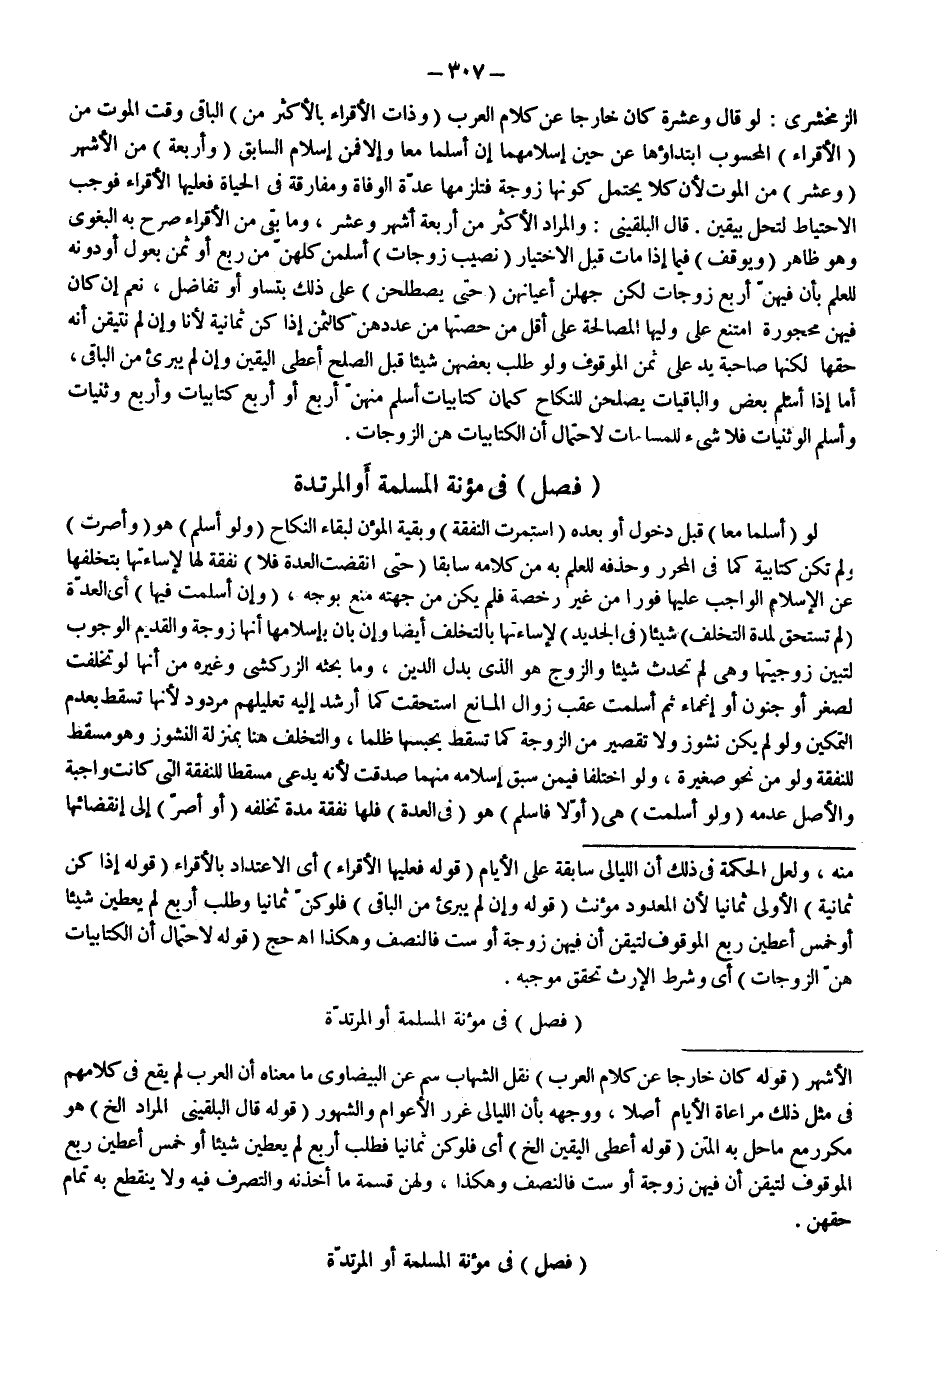 – ٣٠٧ –
الزمخشرى : لو قال وعشرة كان خارجا عن كلام العرب ( وذات الأقراء بالأكثر من ) الباقى وقت الموت من
( الأقراء ) المحسوب ابتداؤها عن حين إسلامهما إن أسلما معا وإلا فمن إسلام السابق ( وأربعة ) من الأشهر
( وعشر ) من الموت لأن كلا يحتمل كونها زوجة فتلزمها عدّة الوفاة ومفارقة فى الحياة فعليها الأقراء فوجب
الاحتياط لتحل بيقين . قال البلقينى : والمراد الأكثر من أربعة أشهر وعشر ، وما بقى من الأقراء صرح به البغوى
وهو ظاهر ( ويوقف ) فيما إذا مات قبل الاختيار ( نصيب زوجات ) أسلمن كلهنّ من ربع أو ثمن بعول أو دونه
للعلم بأن فيهنّ أربع زوجات لكن جهلن أعيانهن ( حتى يصطلحن ) على ذلك بتساو أو تفاضل ، نعم إن كان
فيهن محجورة امتنع على وليها المصالحة على أقل من حصتها من عددهن كالثمن إذا كن ثمانية لأنا وإن لم نتيقن أنه
حقها لكنها صاحبة يد على ثمن الموقوف ولو طلب بعضهن شيئا قبل الصلح أعطى اليقين وإن لم يبرئ من الباقى ،
أما إذا أسلم بعض والباقيات يصلحن للنكاح كثمان كتابيات أسلم منهنّ أربع أو أربع كتابيات وأربع وثنيات
وأسلم الوثنيات فلا شىء للمسلمات لاحتمال أن الكتابيات هن الزوجات .
( فصل ) فى مؤنة المسلمة أو المرتدة
لو ( أسلما معا ) قبل دخول أو بعده ( استمرت النفقة ) وبقية المؤن لبقاء النكاح ( ولو أسلم ) هو ( وأصرت )
ولم تكن كتابية كما فى المحرر وحذفه للعلم به من كلامه سابقا ( حتى انقضت العدة فلا ) نفقة لها لإساءتها بتخلفها
عن الإسلام الواجب عليها فورا من غير رخصة فلم يكن من جهته منع بوجه ، ( وإن أسلمت فيها ) أى العدّة
( لم تستحق لمدة التخلف ) شيئا ( فى الجديد ) لإساءتها بالتخلف أيضا وإن بان بإسلامها أنها زوجة والقديم الوجوب
لتبين زوجيتها وهى لم تحدث شيئا والزوج هو الذى بدل الدين ، وما بحثه الزركشى وغيره من أنها لو تخلفت
لصغر أو جنون أو إغماء ثم أسلمت عقب زوال المانع استحقت كما أرشد إليه تعليلهم مردود لأنها تسقط بعدم
التمكين ولو لم يكن نشوز ولا تقصير من الزوجة كما تسقط بحبسها ظلما ، والتخلف هنا بمنزلة النشوز وهو مسقط
للنفقة ولو من نحو صغيرة ، ولو اختلفا فيمن سبق إسلامه منهما صدقت لأنه يدعى مسقطا للنفقة التى كانت واجبة
والأصل عدمه ( ولو أسلمت ) هى ( أوّلا فأسلم ) هو ( فى العدة ) فلها نفقة مدة تخلفه ( أو أصرّ ) إلى إنقضائها
منه ، ولعل الحكمة فى ذلك أن الليالى سابقة على الأيام ( قوله فعليها الأقراء ) أى الاعتداد بالأقراء ( قوله إذا كن
ثمانية ) الأولى ثمانيا لأن المعدود مؤنث ( قوله وإن لم يبرئ من الباقى ) فلو كنّ ثمانيا وطلب أربع لم يعطين شيئا
أو خمس أعطين ربع الموقوف لتيقن أن فيهن زوجة أو ست فالنصف وهكذا اهـ حج ( قوله لاحتمال أن الكتابيات
هنّ الزوجات ) أى وشرط الإرث تحقق موجبه .
( فصل ) فى مؤنة المسلمة أو المرتدّة
الأشهر ( قوله كان خارجا عن كلام العرب ) نقل الشهاب سم عن البيضاوى ما معناه أن العرب لم يقع فى كلامهم
فى مثل ذلك مراعاة الأيام أصلا ، ووجهه بأن الليالى غرر الأعوام والشهور ( قوله قال البلقينى المراد الخ ) هو
مكرر مع ماحل به المتن ( قوله أعطى اليقين الخ ) أى فلو كن ثمانيا فطلب أربع لم يعطين شيئا أو خمس أعطين ربع
الموقوف لتيقن أن فيهن زوجة أو ست فالنصف وهكذا ، ولهن قسمة ما أخذنه والتصرف فيه ولا ينقطع به تمام
حقهن .
( فصل ) فى مؤنة المسلمة أو المرتدّة